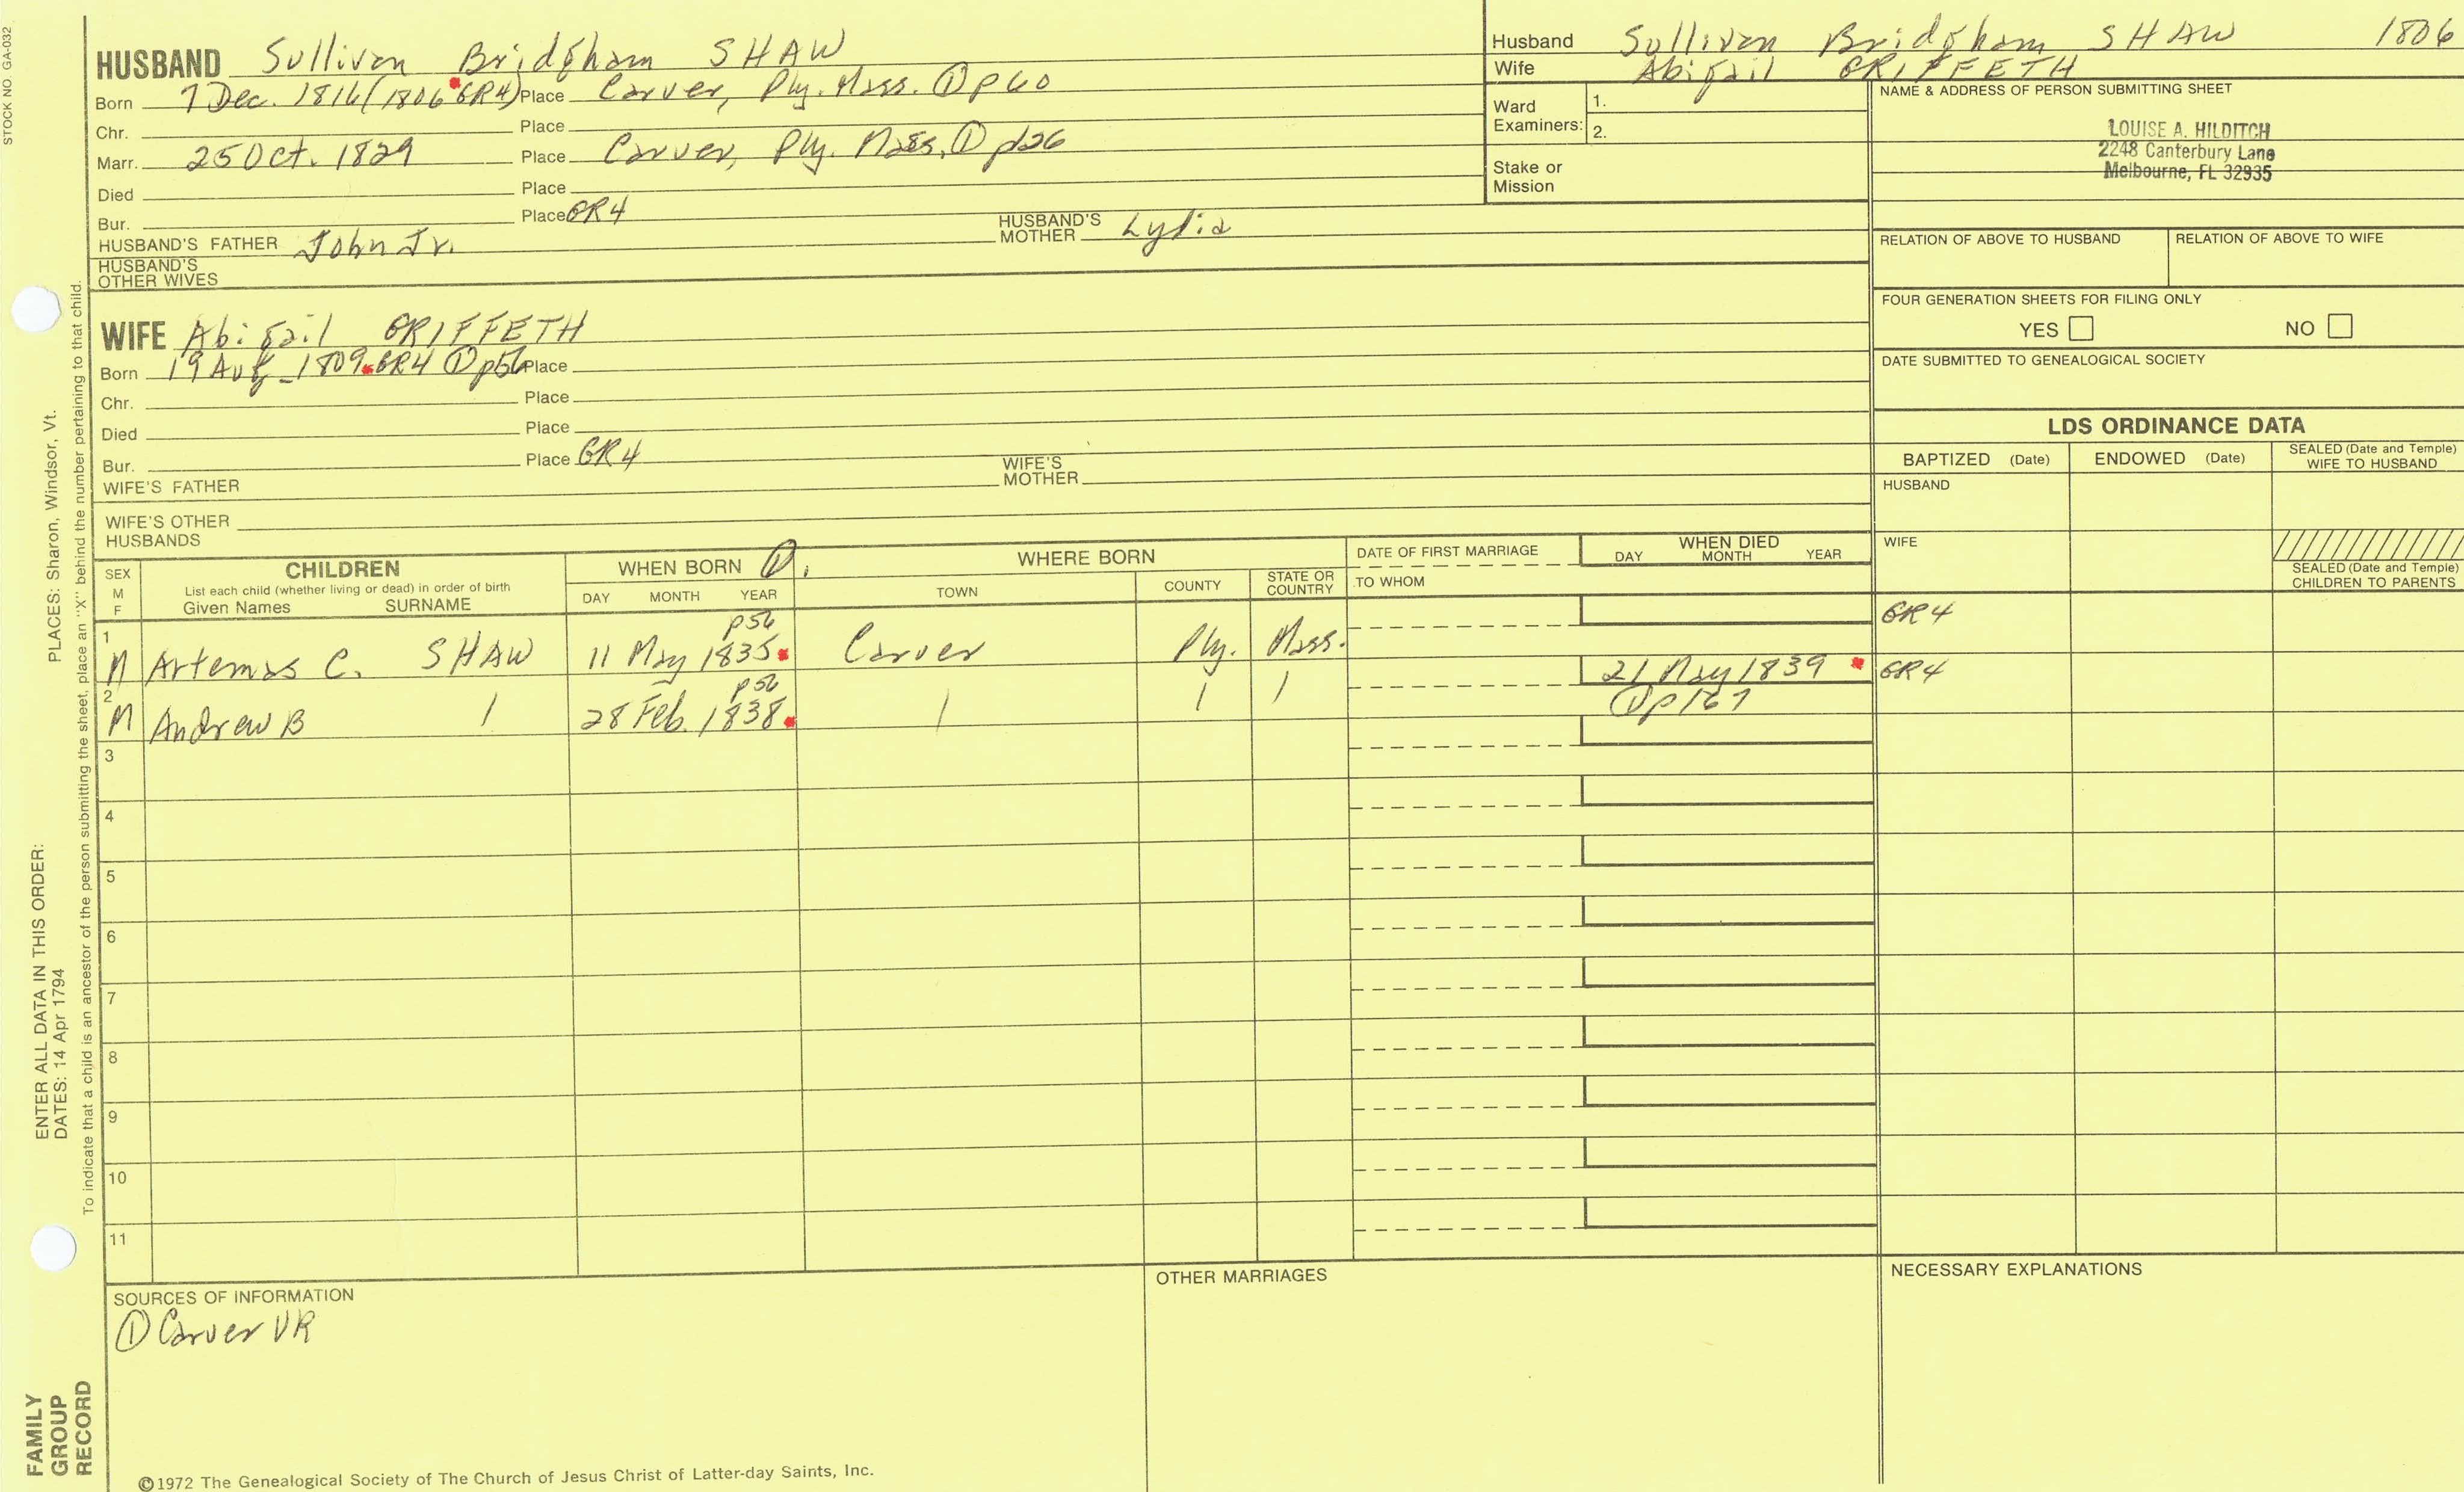 STOCK NO. GA-032
HUSBAND Sullivan Bridgham SHAW
Born 7 Dec. 1816 (1806 GR4) Place Carver, Ply. Mass. ① p60
Chr. Place
Marr. 25 Oct. 1829 Place Carver, Ply. Mass. ① p126
Died Place
Bur. Place GR4
HUSBAND'S FATHER John Jr. HUSBAND'S MOTHER Lydia
HUSBAND'S OTHER WIVES
Husband Sullivan Bridgham SHAW 1806
Wife Abigail GRIFFETH
Ward Examiners: 1.
2.
Stake or Mission
NAME & ADDRESS OF PERSON SUBMITTING SHEET
LOUISE A. HILDITCH
2248 Canterbury Lane
Melbourne, FL 32935
RELATION OF ABOVE TO HUSBAND RELATION OF ABOVE TO WIFE
FOUR GENERATION SHEETS FOR FILING ONLY
YES NO
DATE SUBMITTED TO GENEALOGICAL SOCIETY
WIFE Abigail GRIFFETH
Born 19 Aug. 1809 GR4 ① p56 Place
Chr. Place
Died Place
Bur. Place GR4
WIFE'S FATHER WIFE'S MOTHER
WIFE'S OTHER HUSBANDS
LDS ORDINANCE DATA
BAPTIZED (Date) ENDOWED (Date) SEALED (Date and Temple) WIFE TO HUSBAND
HUSBAND
WIFE
SEALED (Date and Temple) CHILDREN TO PARENTS
SEX M F CHILDREN List each child (whether living or dead) in order of birth Given Names SURNAME
WHEN BORN ① DAY MONTH YEAR
WHERE BORN TOWN COUNTY STATE OR COUNTRY
DATE OF FIRST MARRIAGE TO WHOM
WHEN DIED DAY MONTH YEAR
p56 GR4
1 M Artemas C. SHAW 11 May 1835 Carver Ply. Mass.
p56 21 May 1839 GR4
2 M Andrew B / 28 Feb. 1838 / / / ① p167
3
4
5
6
7
8
9
10
11
SOURCES OF INFORMATION
① Carver VR
OTHER MARRIAGES
NECESSARY EXPLANATIONS
©1972 The Genealogical Society of The Church of Jesus Christ of Latter-day Saints, Inc.
FAMILY GROUP RECORD
ENTER ALL DATA IN THIS ORDER:
DATES: 14 Apr 1794
PLACES: Sharon, Windsor, Vt.
To indicate that a child is an ancestor of the person submitting the sheet, place an "X" behind the number pertaining to that child.